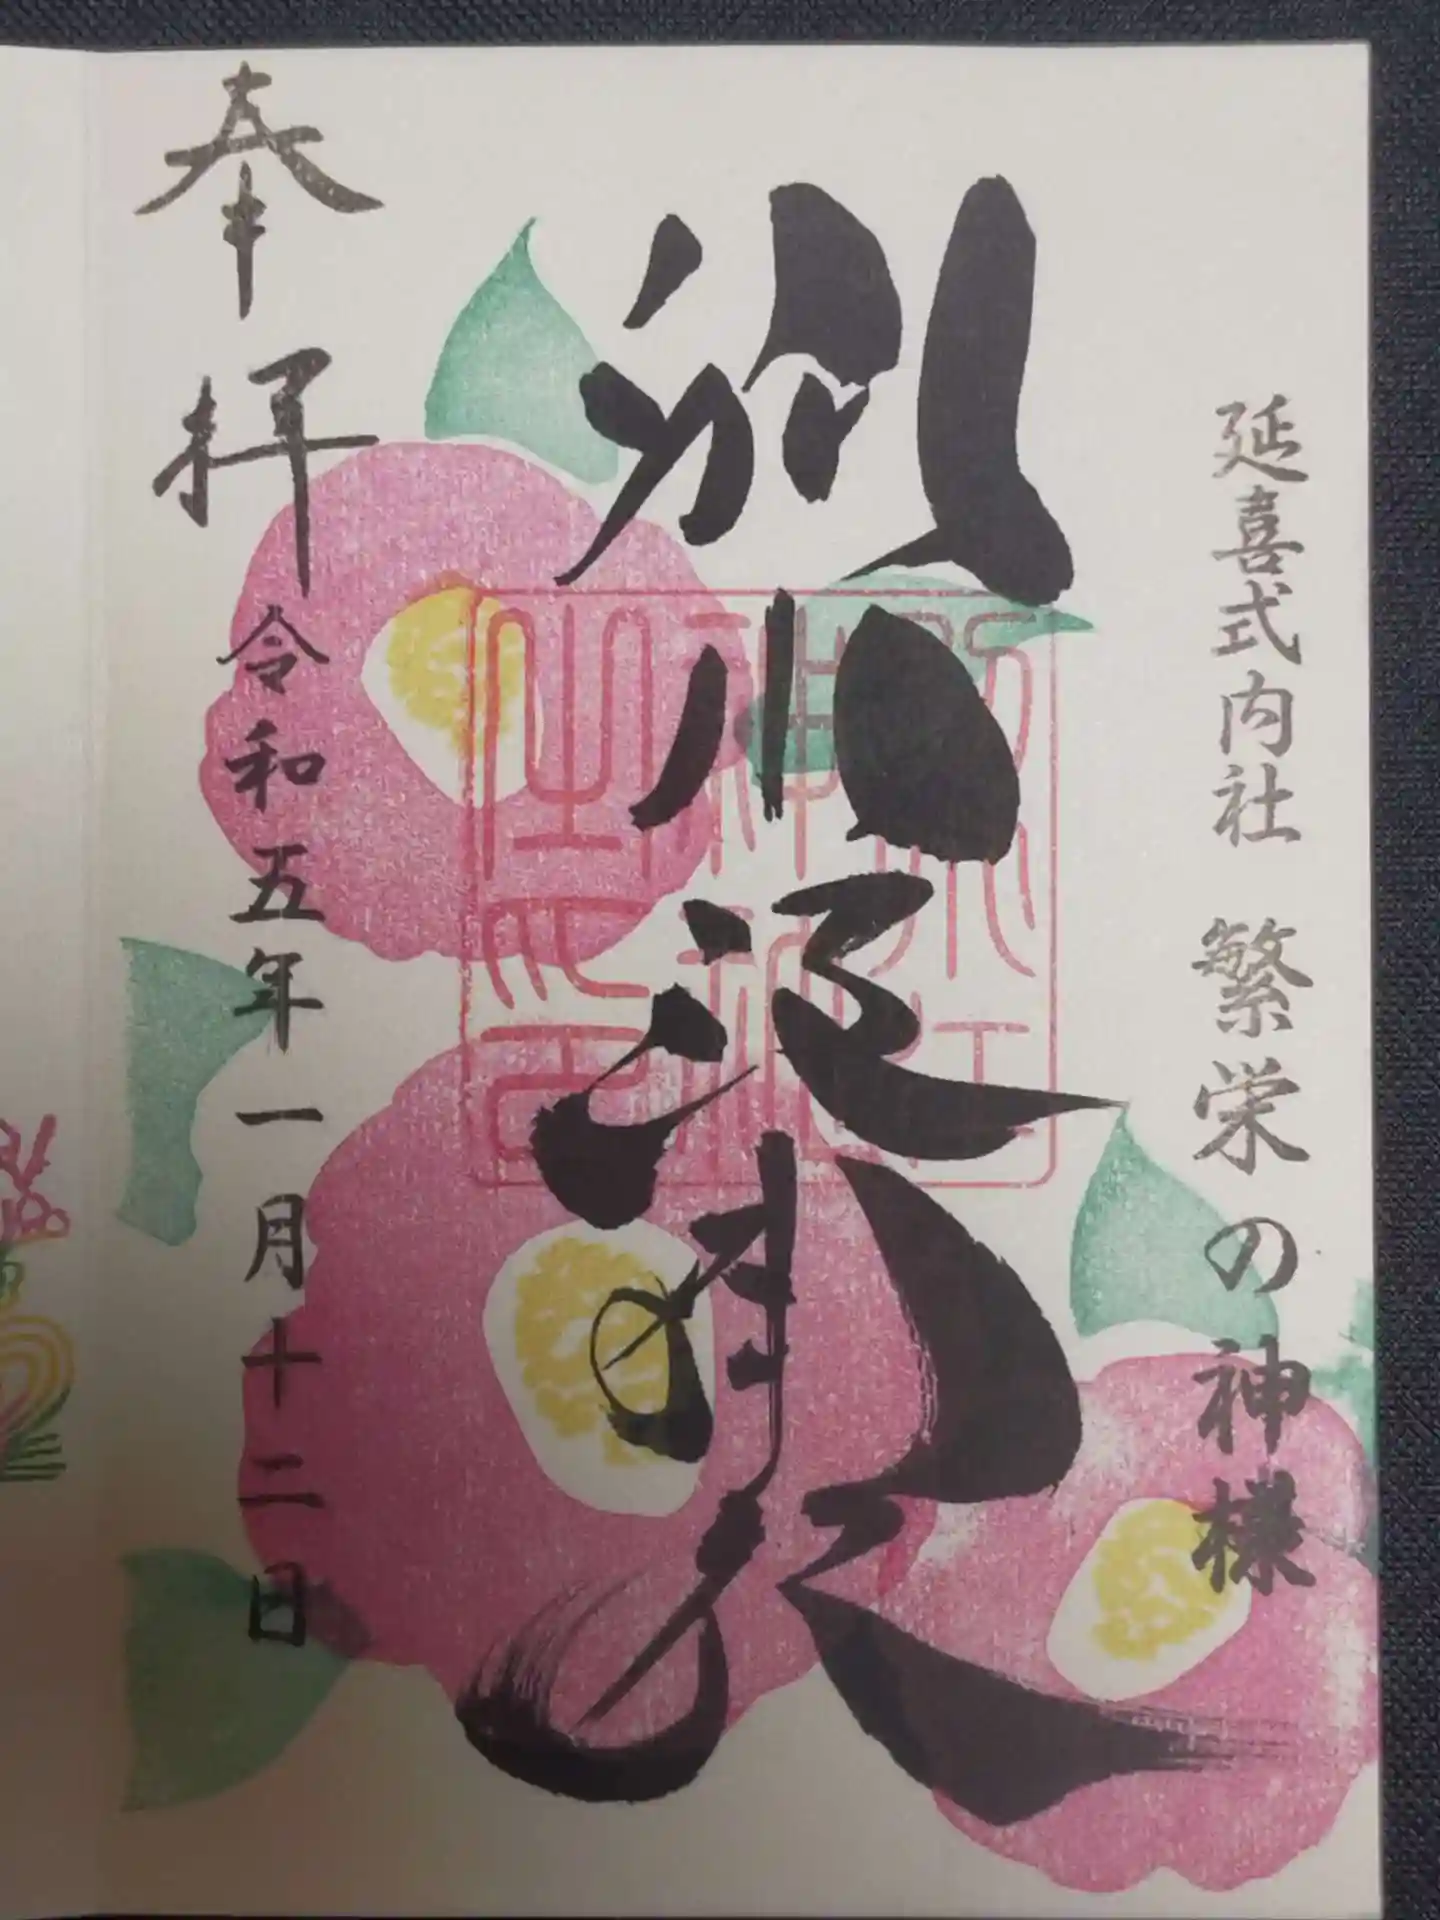 延喜式内社 繁栄の神様
別小江神社
奉拝
令和五年一月十二日